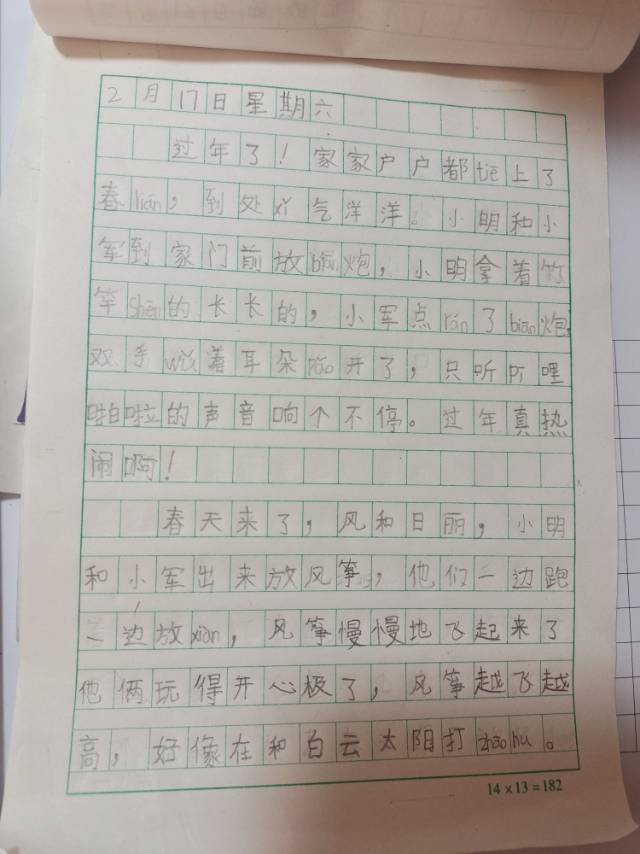 2月17日星期六
过年了!家家户户都tiē上了
春lián,到处xǐ气洋洋。小明和小
军到家门前放biān炮,小明拿着竹
竿shēn的长长的,小军点rán了biān炮,
双手wǔ着耳朵pǎo开了,只听噼哩
啪啦的声音响个不停。过年真热
闹啊!
春天来了,风和日丽,小明
和小军出来放风筝,他们一边跑
一边放xiàn,风筝慢慢地飞起来了
他俩玩得开心极了,风筝越飞越
高,好像在和白云太阳打zhāohu。
14×13=182